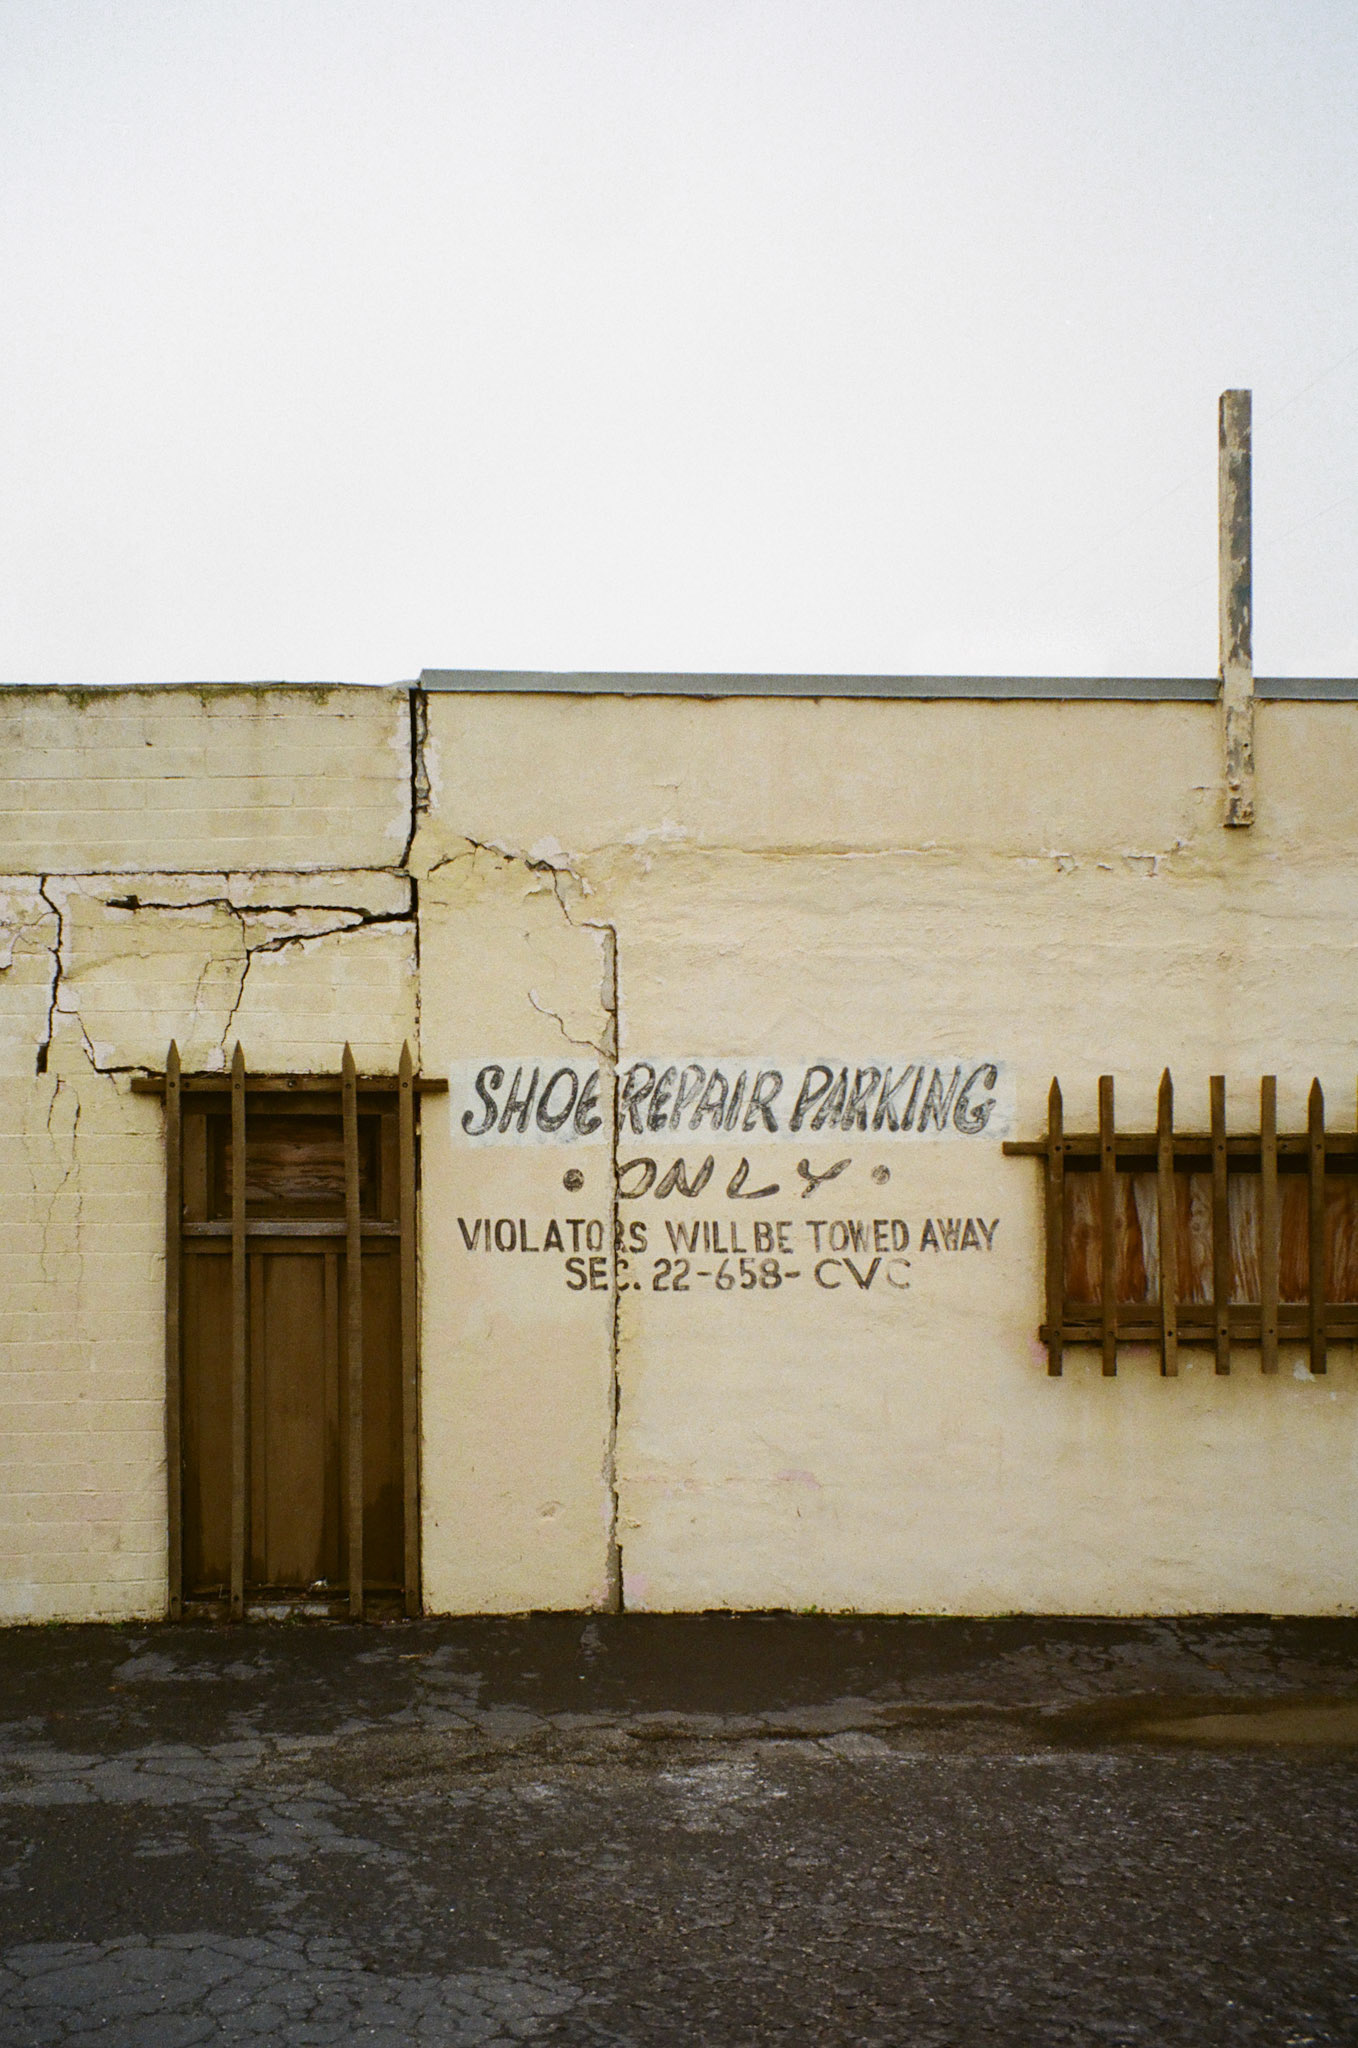 SHOE REPAIR PARKING
• ONLY •
VIOLATORS WILL BE TOWED AWAY
SEC. 22-658- CVC